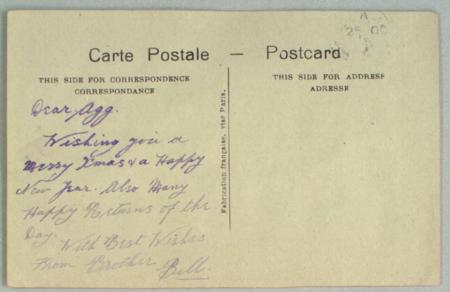 Carte Postale — Postcard
THIS SIDE FOR CORRESPONDENCE
CORRESPONDANCE
THIS SIDE FOR ADDRESS
ADRESSE
Dear Agg.
Wishing you a
Merry Xmas & a Happy
New Year. Also Many
Happy Returns of the
Day.
With Best Wishes
From Brother Bill.
Fabrication française, visé Paris.